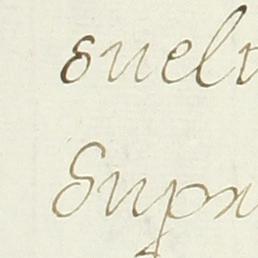 suelt
Supr